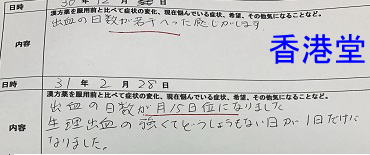 日時 30 年 12 月
漢方薬を服用前と比べて症状の変化、現在悩んでいる症状、希望、その他気になることなど。
出血の日数が若干へった感じがします
内容
香港堂
日時 31 年 2 月 28 日
漢方薬を服用前と比べて症状の変化、現在悩んでいる症状、希望、その他気になることなど。
出血の日数が月15日位になりました
生理出血の強くてどうしようもない日が1日だけに
なりました。
内容